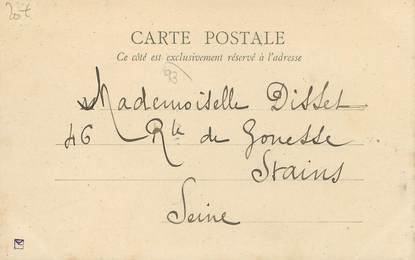 CARTE POSTALE
Ce côté est exclusivement réservé à l'adresse
93
Mademoiselle Disset
46 Rte de Gonesse
Stains
Seine